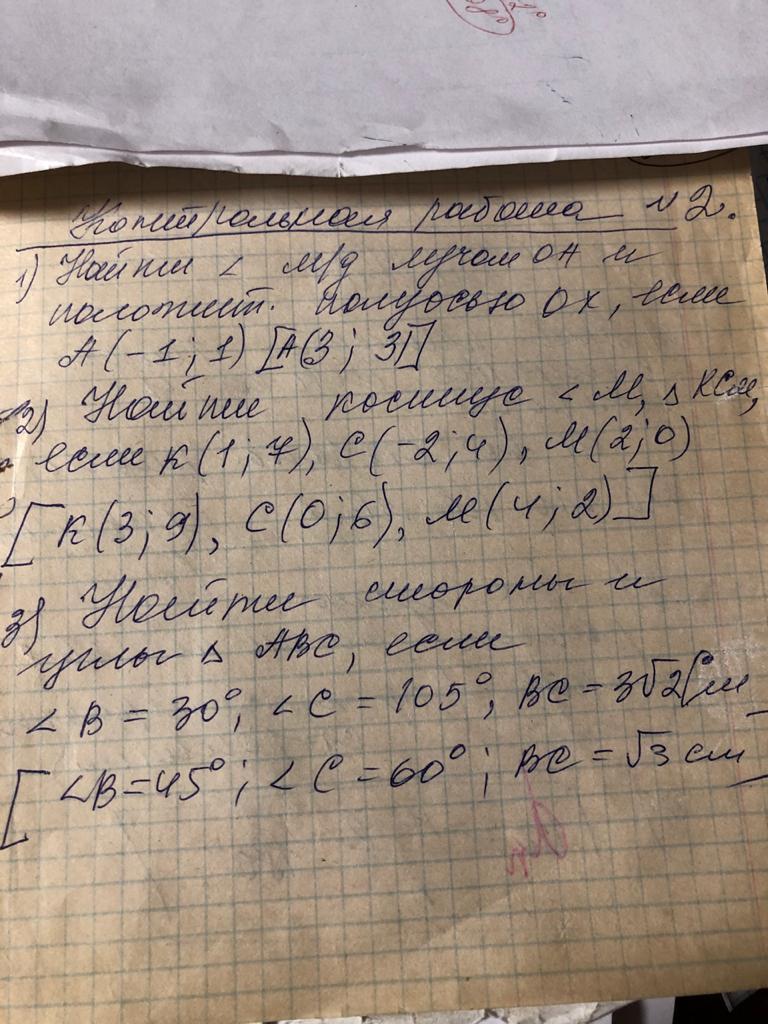 Контрольная работа №2.
1) Найти < м/д лучом ОА и
положит. полуосью Ох, если
А(-1; 1) [А(3; 3)]
2) Найти косинус < М, △ КСМ,
если К(1; 7), С(-2; 4), М(2; 0)
[К(3; 9), С(0; 6), М(4; 2)]
3) Найти стороны и
углы △ АВС, если
< В = 30°, < С = 105°, ВС = 3√2 см
[< В = 45°; < С = 60°; ВС = √3 см